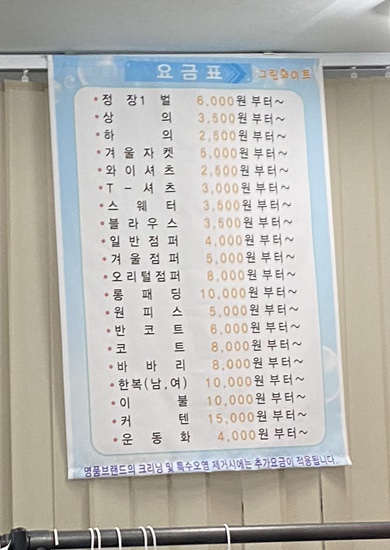 요금표 그린화이트
• 정 장1 벌 6,000원 부터~
• 상 의 3,500원 부터~
• 하 의 2,500원 부터~
• 겨울자켓 5,000원 부터~
• 와이셔츠 2,500원 부터~
• T - 셔츠 3,000원 부터~
• 스 웨 터 3,500원 부터~
• 블라우스 3,500원 부터~
• 일반점퍼 4,000원 부터~
• 겨울점퍼 5,000원 부터~
• 오리털점퍼 8,000원 부터~
• 롱 패 딩 10,000원 부터~
• 원 피 스 5,000원 부터~
• 반 코 트 6,000원 부터~
• 코 트 8,000원 부터~
• 바 바 리 8,000원 부터~
• 한복(남,여) 10,000원 부터~
• 이 불 10,000원 부터~
• 커 텐 15,000원 부터~
• 운 동 화 4,000원 부터~
명품브랜드의 크리닝 및 특수오염 제거시에는 추가요금이 적용됩니다.